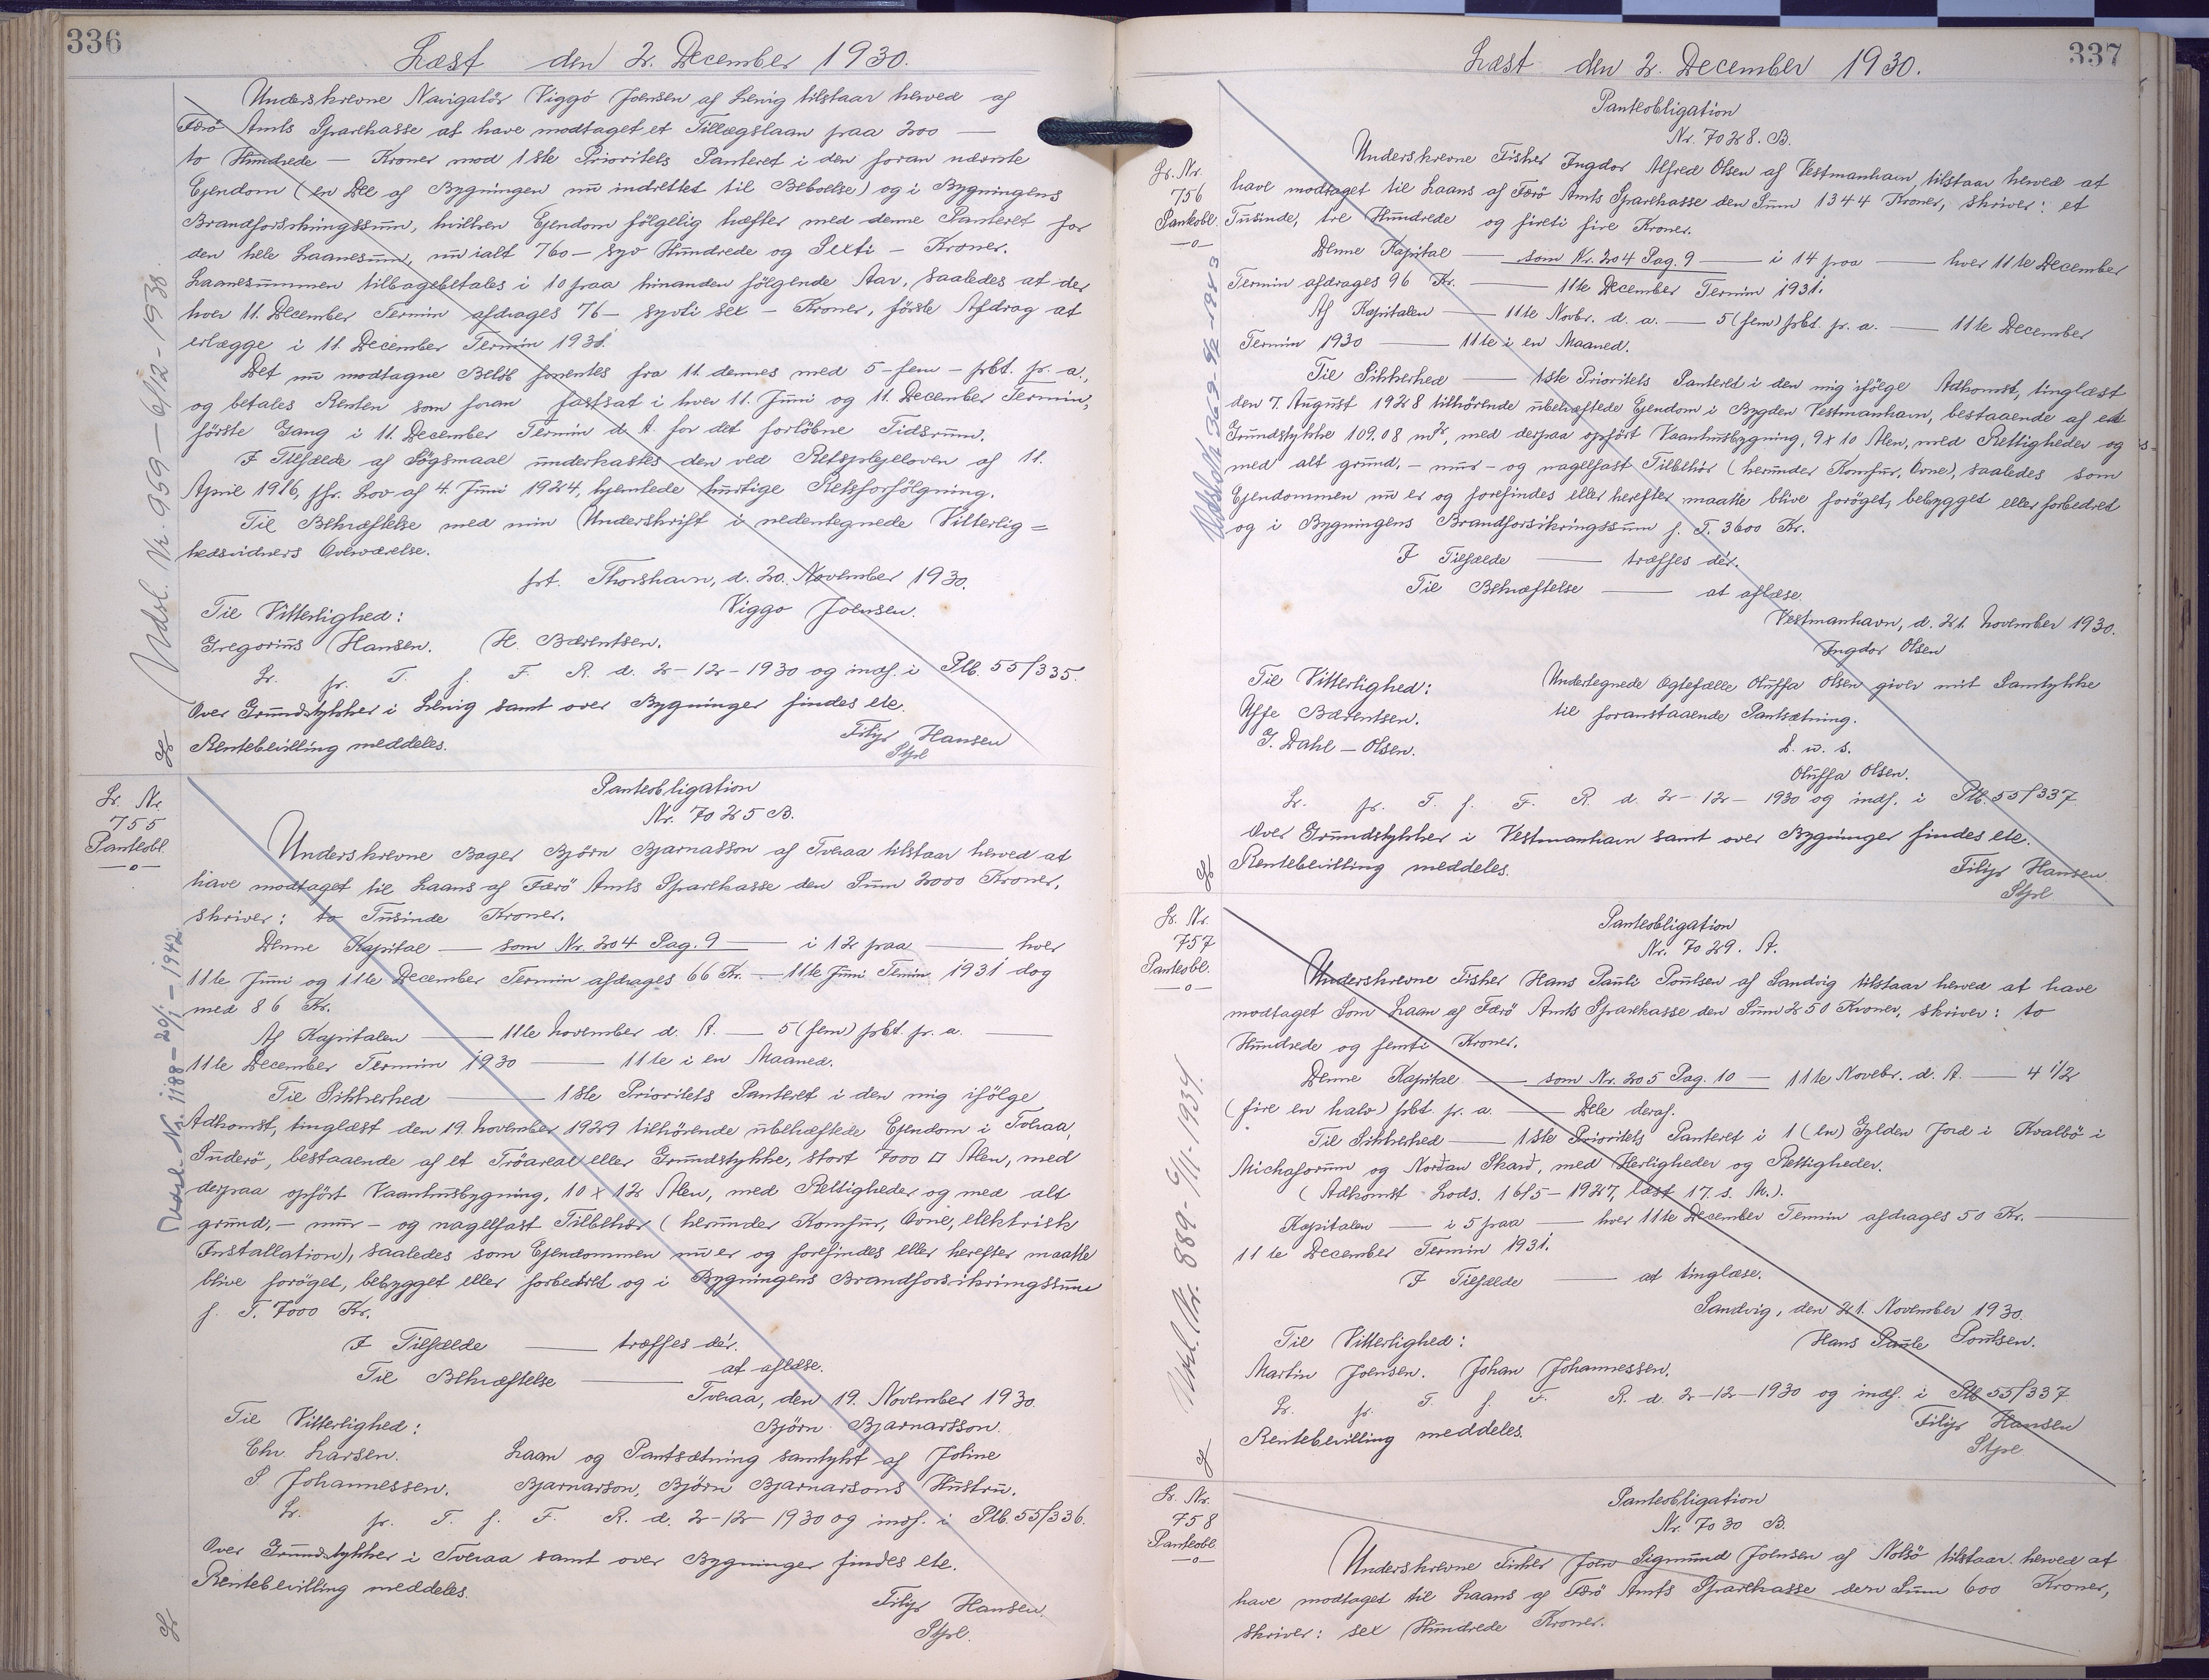 336
Læst den 2. December 1930.
Underskrevne Navigatör Viggó Joensen af Lervig tilstaar herved af
Færö Amts Sparekasse at have modtaget et Tillægslaan paa 200 —
to Hundrede — Kroner mod 1ste Prioritets Panteret i den foran nævnte
Ejendom (en Del af Bygningen nu indrettet til Beboelse) og i Bygningens
Brandforsikringssum, hvilken Ejendom fölgelig hæfter med denne Panteret for
den hele Laanesum, nu ialt 760 — syv Hundrede og Sexti — Kroner.
Laanesummen tilbagebetales i 10 paa hinanden fölgende Aar, saaledes at der
hver 11. December Termin afdrages 76 — syvti sex — Kroner, förste Afdrag at
erlægge i 11. December Termin 1931.
Det nu modtagne Belöb forrentes fra 11. dennes med 5 — fem — pbt. pr. a.,
og betales Renten som foran fastsat i hver 11. Juni og 11. December Termin,
förste Gang i 11. December Termin d. A. for det forlöbne Tidsrum.
I Tilfælde af Sögsmaal underkastes den ved Retsplejeloven af 11.
April 1916, jfr. Lov af 4. Juni 1924, hjemlede hurtige Retsforfölgning.
Til Bekræftelse med min Underskrift i nedentegnede Vitterlig=
hedsvidners Overværelse.
prt. Thorshavn, d. 20. November 1930.
Til Vitterlighed: Viggo Joensen.
Gregorius Hansen. H. Bærentsen.
Lr. pr. T. f. F. R. d. 2-12-1930 og indf. i Ptb. 55/335.
Over Grundstykker i Lervig samt over Bygninger findes ete.
Rentebevilling meddeles. Filip Hansen
Stpl
Udsl. Nr. 959 — 6/12 - 1938.
Lr. Nr.
755
Panteobl.
—o—
Panteobligation
Nr. 7025 B.
Underskrevne Bager Björn Bjarnasson af Tveraa tilstaar herved at
have modtaget til Laans af Færö Amts Sparekasse den Sum 2000 Kroner,
skriver: to Tusinde Kroner.
Denne Kapital — som Nr. 204 Pag. 9 — i 12 paa — hver
11te Juni og 11te December Termin afdrages 66 Kr. — 11te Juni Temin 1931 dog
med 86 Kr.
Af Kapitalen — 11te November d. A. — 5 (fem) pbt. pr. a. —
11te December Termin 1930 — 11te i en Maaned.
Til Sikkerhed — 1ste Prioritets Panteret i den mig ifölge
Adkomst, tinglæst den 19. November 1929 tilhörende ubehæftede Ejendom i Tveraa,
Suderö, bestaaende af et Tröareal eller Grundstykke, stort 7000 □ Alen, med
derpaa opfört Vaanhusbygning, 10 x 12 Alen, med Rettigheder og med alt
grund, — mur — og nagelfast Tilbehör (herunder Komfur, Ovne, elektrisk
Installation), saaledes som Ejendommen nu er og forefindes eller herefter maatte
blive foröget, bebygget eller forbedret og i Bygningens Brandforsikringssum
f. T. 7000 Kr.
I Tilfælde — træffes dér.
Til Bekræftelse — at aflæse.
Tveraa, den 19. November 1930.
Til Vitterlighed: Björn Bjarnarsson.
Chr. Larsen. Laan og Pantsætning samtykt af Joline
S Johannessen. Bjarnarson, Björn Bjarnarsons Hustru.
Lr. pr. T. f. F. R. d. 2-12-1930 og indf. i Ptb. 55/336.
Over Grundstykker i Tveraa samt over Bygninger findes ete.
Rentebevilling meddeles.
Filip Hansen.
Stpl.
Udsl. Nr. 1188 — 20/1 — 1942.
337
Læst den 2. December 1930.
Lr. Nr.
756
Panteobl.
—o—
Panteobligation
Nr. 7028. B.
Underskrevne Fisker Ingdor Alfred Olsen af Vestmanhavn, tilstaar herved at
have modtaget til Laans af Færö Amts Sparekasse den Sum 1344 Kroner, skriver: et
Tusinde, tre Hundrede og fireti fire Kroner.
Denne Kapital — som Nr. 204 Pag. 9 — i 14 paa — hver 11te December
Termin afdrages 96 Kr. — 11te December Termin 1931.
Af Kapitalen — 11te Novbr. d. a. — 5 (fem) pbt. pr. a. — 11te December
Termin 1930 — 11te i en Maaned.
Til Sikkerhed — 1ste Prioritets Panteret i den mig ifölge Adkomst, tinglæst
den 7. August 1928 tilhörende ubehæftede Ejendom i Bygden Vestmanhavn, bestaaende af ett
Grundstykke 109.08 m², med derpaa opfört Vaanhusbygning, 9 x 10 Alen, med Rettigheder og
med alt grund, — mur — og nagelfast Tilbehör (herunder Komfur, Ovne), saaledes som
Ejendommen nu er og forefindes eller herefter maatte blive foröget, bebygget eller forbedret
og i Bygningens Brandforsikringssum f. T. 3600 Kr.
I Tilfælde — træffes dér.
Til Bekræftelse — at aflæse.
Vestmanhavn, d. 21. November 1930.
Ingdor Olsen
Til Vitterlighed: Undertegnede Ægtefælle Oluffa Olsen giver mit Samtykke
Uffe Bærentsen. til foranstaaende Pantsætning.
J. Dahl-Olsen. d. u. s.
Oluffa Olsen.
Lr. pr. T. f. F. R. d. 2-12-1930 og indf. i Ptb. 55/337
Over Grundstykker i Vestmanhavn samt over Bygninger findes ete.
Rentebevilling meddeles.
Filip Hansen.
Stpl
Lr. Nr.
757
Panteobl.
—o—
Panteobligation
Nr. 7029. A.
Underskrevne Fisker Hans Pauli Poulsen af Sandvig tilstaar herved at have
modtaget som Laan af Færö Amts Sparekasse den Sum 250 Kroner, skriver: to
Hundrede og femti Kroner.
Denne Kapital — som Nr. 205 Pag. 10 — 11te Novebr. d. A. — 4 1/2
(fire en halv) pbt. pr. a. — Dele deraf.
Til Sikkerhed — 1ste Prioritets Panteret i 1 (en) Gylden Jord i Kvalbö i
Michaforum og Nordan Skard, med Herligheder og Rettigheder.
(Adkomst Lods. 16/5 - 1927, læst 17. s. M.).
Kapitalen — i 5 paa — hver 11te December Termin afdrages 50 Kr. —
11te December Termin 1931.
I Tilfælde — at tinglæse.
Sandvig, den 21. November 1930.
Til Vitterlighed: Hans Paule Poulsen.
Martin Joensen. Johan Johannessen.
Lr. pr. T. f. F. R. d. 2-12-1930 og indf. i Ptb 55/337
Rentebevilling meddeles. Filip Hansen
Stpl
Udsl. Nr. 889 - 6/11 - 1934
Lr. Nr.
758
Panteobl
—o—
Panteobligation
Nr. 7030 B.
Underskrevne Fisker Joen Sigmund Joensen af Nolsö tilstaar herved at
have modtaget til Laans af Færö Amts Sparekasse den Sum 600 Kroner,
skriver: sex Hundrede Kroner.